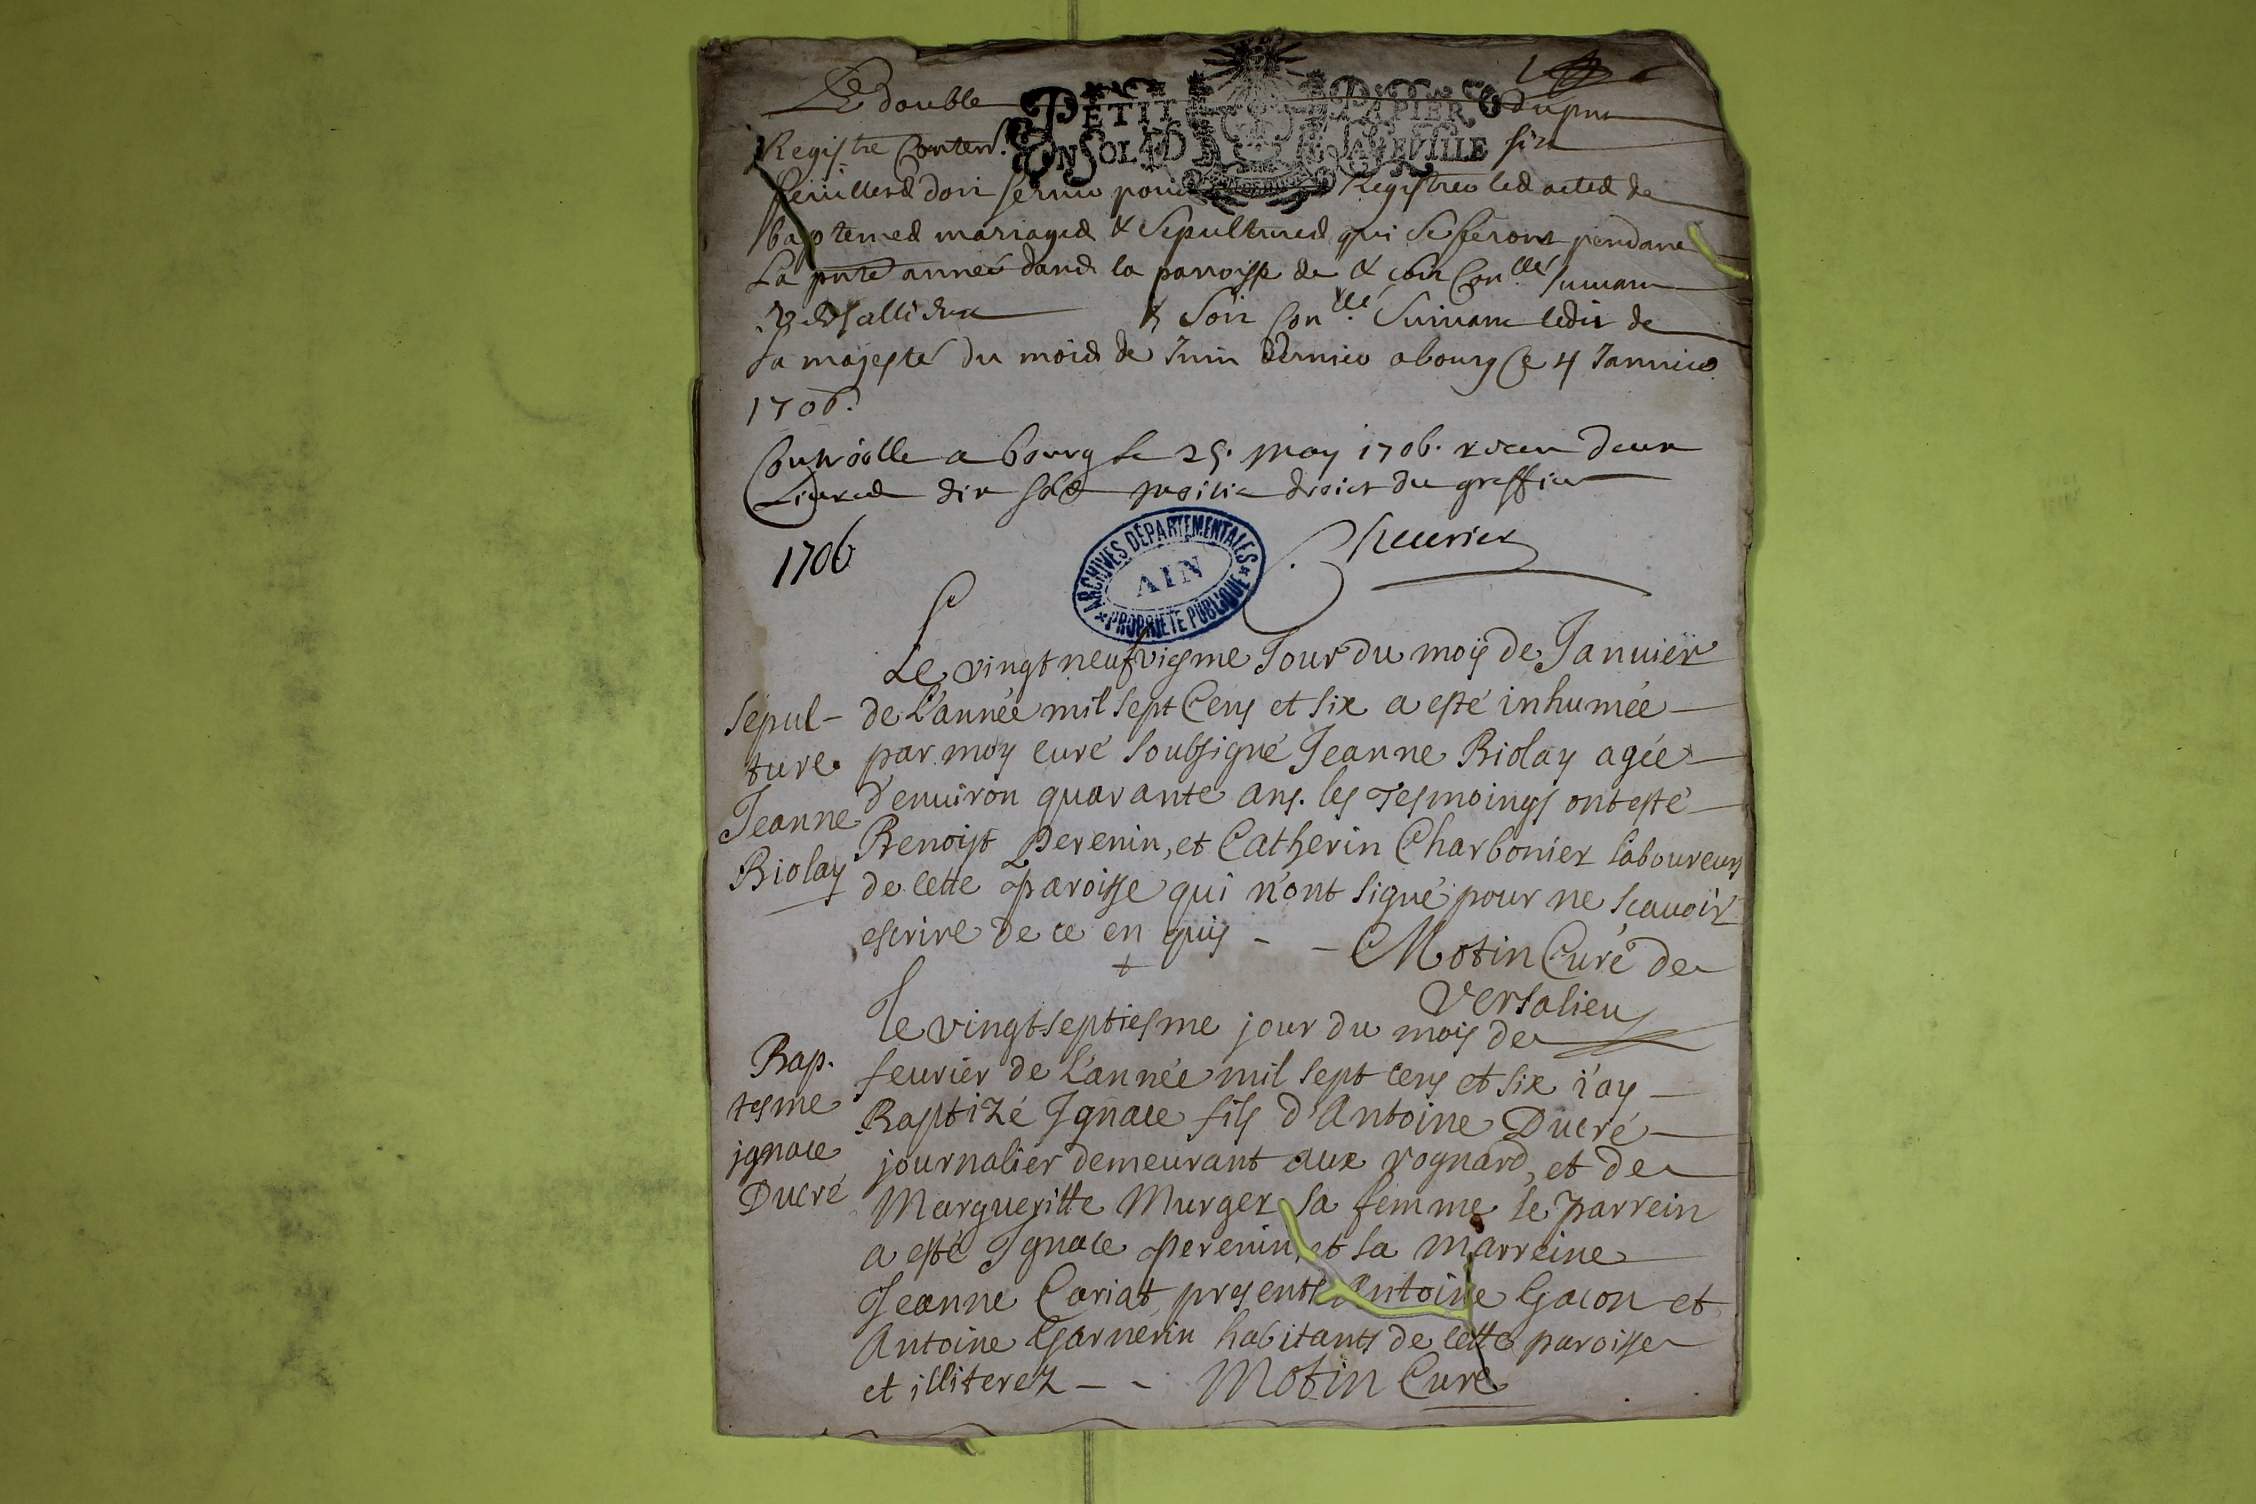 Le double PETIT PAPIER du pnt
UN SOL LA FEUILLE
Registre Conten. six
feuilletz doit servir pour Registrer les actes de
baptemes mariages & Sepultures qui se feront pendant
La pnte année dans la parroisse de & soit Con.llé suivant
Versallieux & Soit Con.llé Suivant ledit de
sa majesté du mois de Juin dernier a bourg Ce 4 Janvier
1706.
Controolle a bourg le 25. may 1706. receu deux
Livres dix sols moitié droict du greffier
Cheurier
1706
ARCHIVES DÉPARTEMENTALES
AIN
PROPRIÉTÉ PUBLIQUE
Le vingt neufviesme Jour du mois de Januier
de L'année mil sept Cens et six a esté inhumée
par moy curé soubsigné Jeanne Riolay agée
d'enuiron quarante ans. les Tesmoings ont esté
Benoist Perenin, et Catherin Charbonier laboureurs
de cette paroisse qui n'ont signé pour ne scauoir
escrire de ce en quis - - Motin Curé de
Versalieu
sepul-
ture.
Jeanne
Riolay
le vingtseptiesme jour du mois de
feurier de L'année mil sept cens et six i'ay
Baptizé Ignace fils d'Antoine Ducré
journalier demeurant aux rognard, et de
Margueritte Murger sa femme le parrein
a esté Ignace perenin, et la marreine
Jeanne Cariat, presents Antoine Gacon et
Antoine Garnerin habitants de cette paroisse
et illiterez - - Motin Curé
Bap.
tesme
jgnace
Ducré